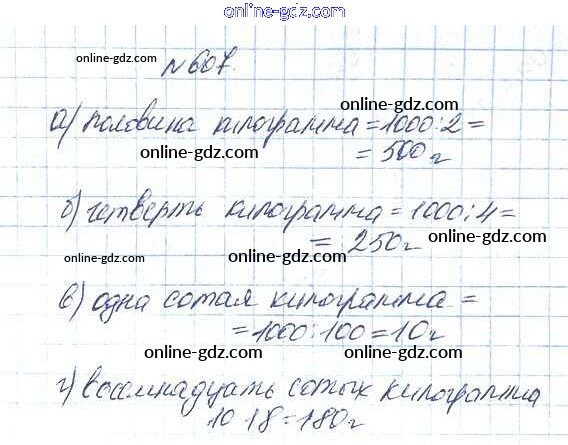 online-gdz.com
№607.
online-gdz.com
online-gdz.com
online-gdz.com
а) половина килограмма = 1000:2 =
online-gdz.com
= 500 г
online-gdz.com
б) четверть килограмма = 1000:4 =
= 250 г
online-gdz.com
online-gdz.com
в) одна сотая килограмма =
= 1000:100 = 10 г
online-gdz.com
online-gdz.com
г) восемнадцать сотых килограмма
10 · 18 = 180 г
online-gdz.com
online-gdz.com